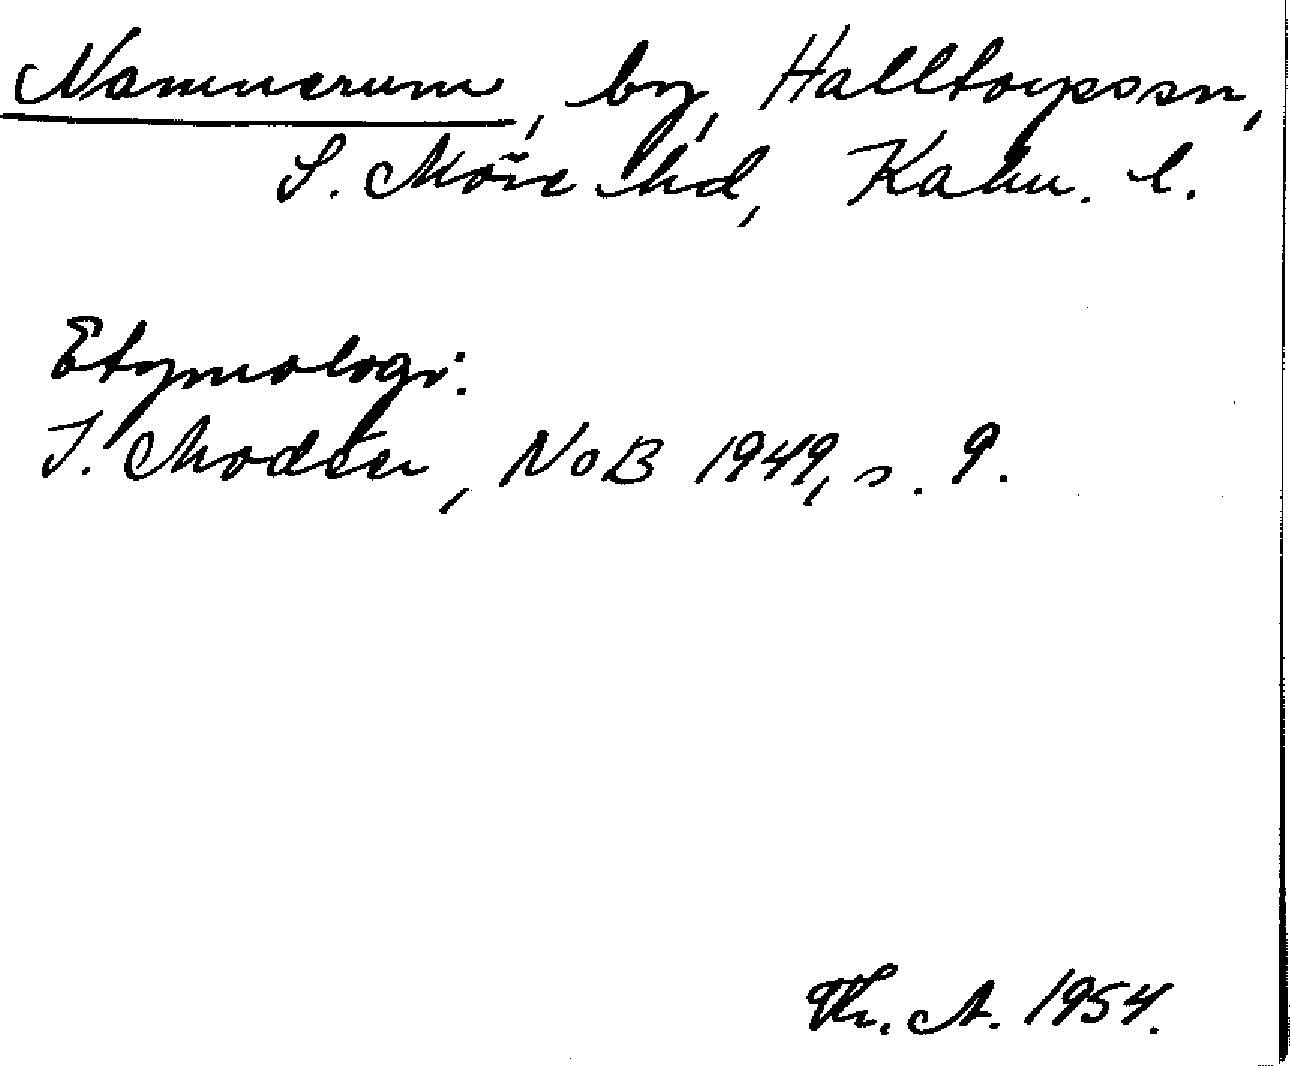 Nammerum, by, Halltorpssn,
S. Möre hd, Kalm. l.
Etymologi:
I. Modéer, NoB 1949, s. 9.
Th. A. 1954.